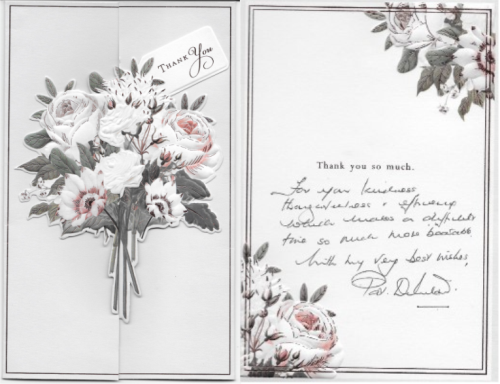 Thank You
Thank you so much.
For your kindness
thoughtfulness &
which makes a difficult
time so much more bearable
With my very best wishes,